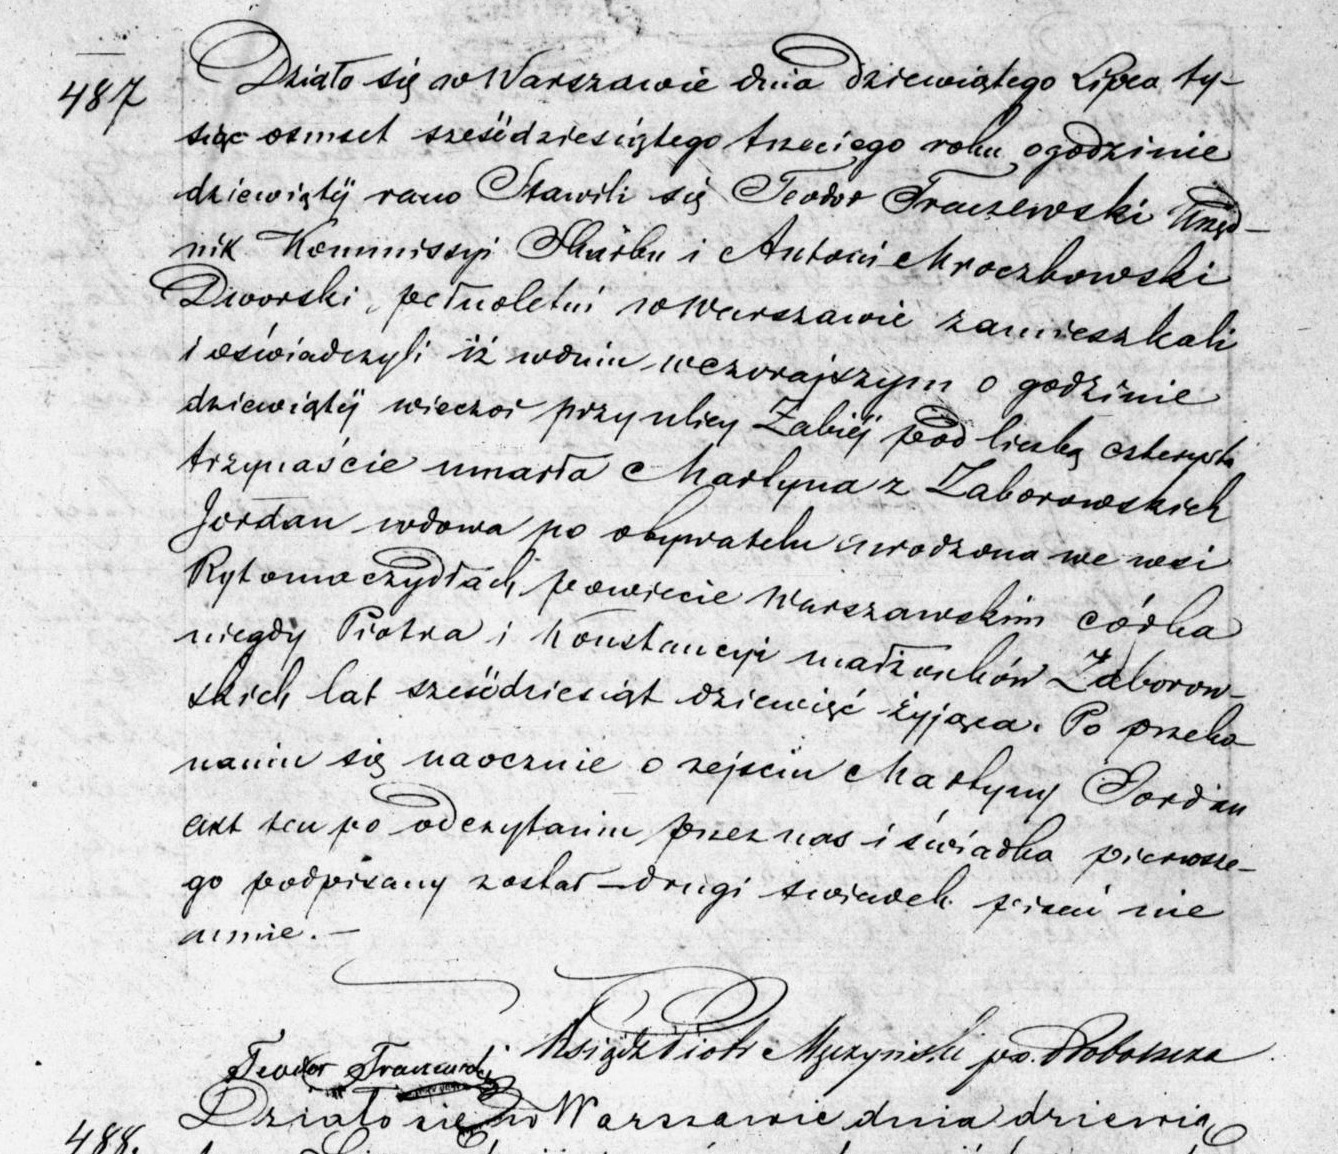 487
Działo się w Warszawie dnia dziewiątego Lipca ty-
siąc osmset sześdziesiątego trzeciego roku o godzinie
dziewiątéj rano Stawili się Teodor Traczewski Urzęd-
nik Kommissyi Skarbu i Antoni Mroczkowski
Dworski, pełnoletni w Warszawie zamieszkali
i oświadczyli iż w dniu wczorajszym o godzinie
dziewiątéj wieczor przy ulicy Żabiéj pod liczbą czterysta
trzynaście umarła Martyna z Zaborowskich
Jordan wdowa po obywatelu urodzona we wsi
powiecie Warszawskim córka
niegdy Piotra i Konstancyi małżonków Zaborow-
skich lat sześdziesiąt dziewięć żyjąca. Po przeko
naniu się naocznie o zejściu Martyny Jordan
akt ten po odczytaniu przez nas i świadka pierwsze-
go podpisany został – drugi swiadek pisać nie
umie. –
Ksiądz Piotr po. Proboszcza
Teodor Traczewski
488.
Działo się w Warszawie dnia dziewią